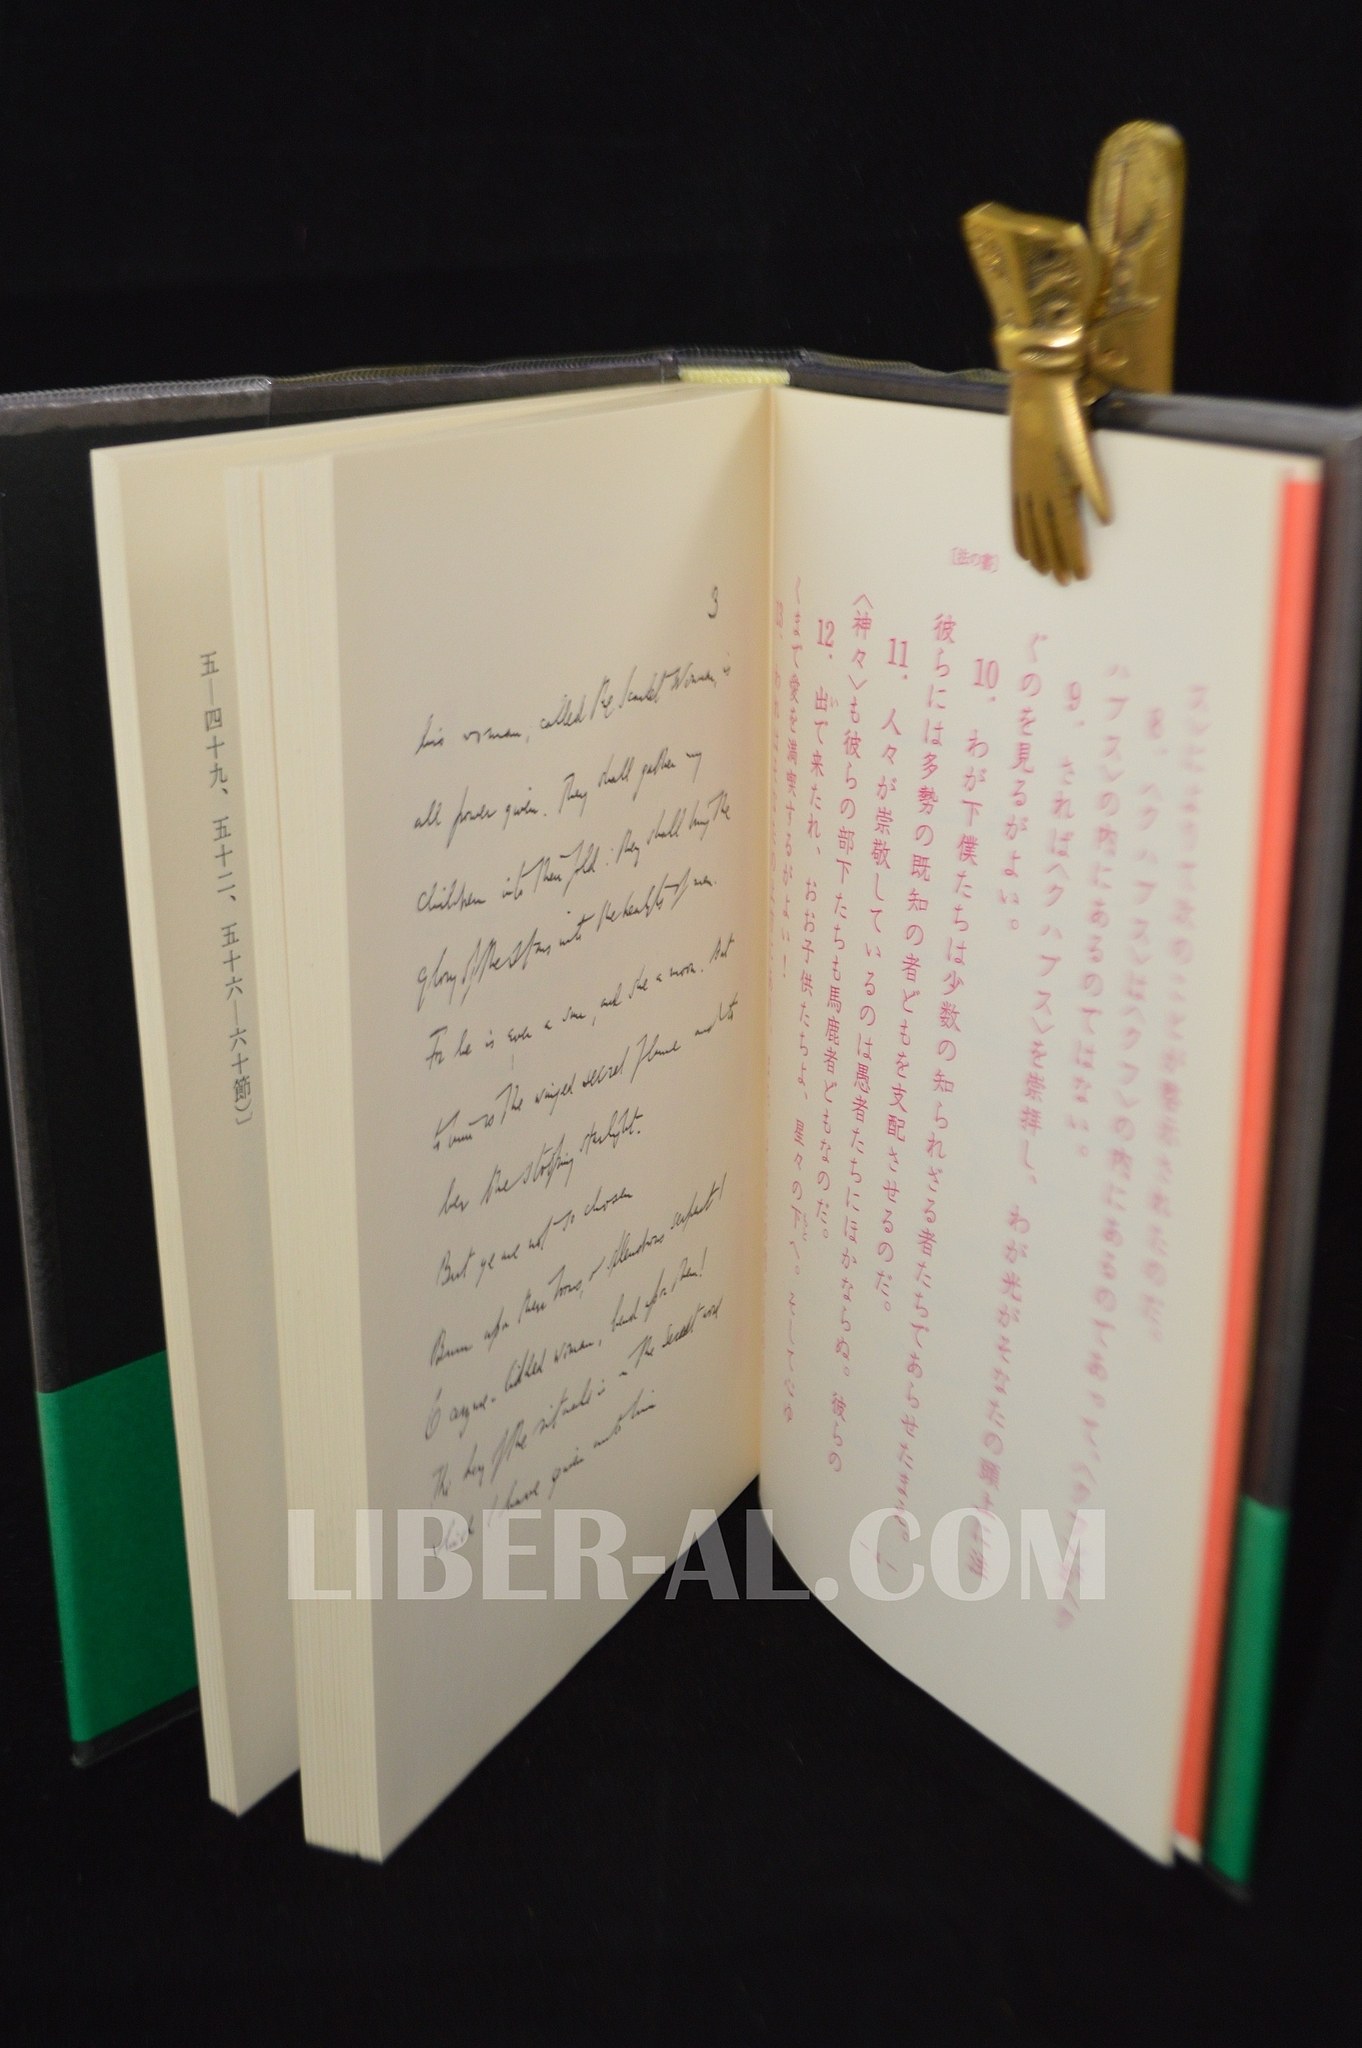 五―四十九、五十二、五十六―六十節)〕
3
his woman, called the Scarlet Woman, is
all power given. They shall gather my
children into their fold: they shall bring the
glory of the stars into the hearts of men.
For he is ever a sun, and she a moon. But
to him is the winged secret flame, and to
her the stooping starlight.
But ye are not so chosen
Burn upon their brows, o splendrous serpent!
O azure-lidded woman, bend upon them!
The key of the rituals is in the secret word
which I have given unto him
〔法の書〕
8、ハクハブス〉は〈クフ〉の内にあるのであって、
ハブス〉の内にあるのではない。
9、されば〈ク ハブス〉を崇拝し、わが光がそなたの
ぐのを見るがよい。
10、わが下僕たちは少数の知られざる者たちであらせたまえ。
彼らには多勢の既知の者どもを支配させるのだ。
11、人々が崇敬しているのは愚者たちにほかならぬ。彼らの
〈神々〉も彼らの部下たちも馬鹿者どもなのだ。
12、出て来たれ、おお子供たちよ、星々の下へ。そして心ゆ
くまで愛を満喫するがよい!
LIBER-AL.COM